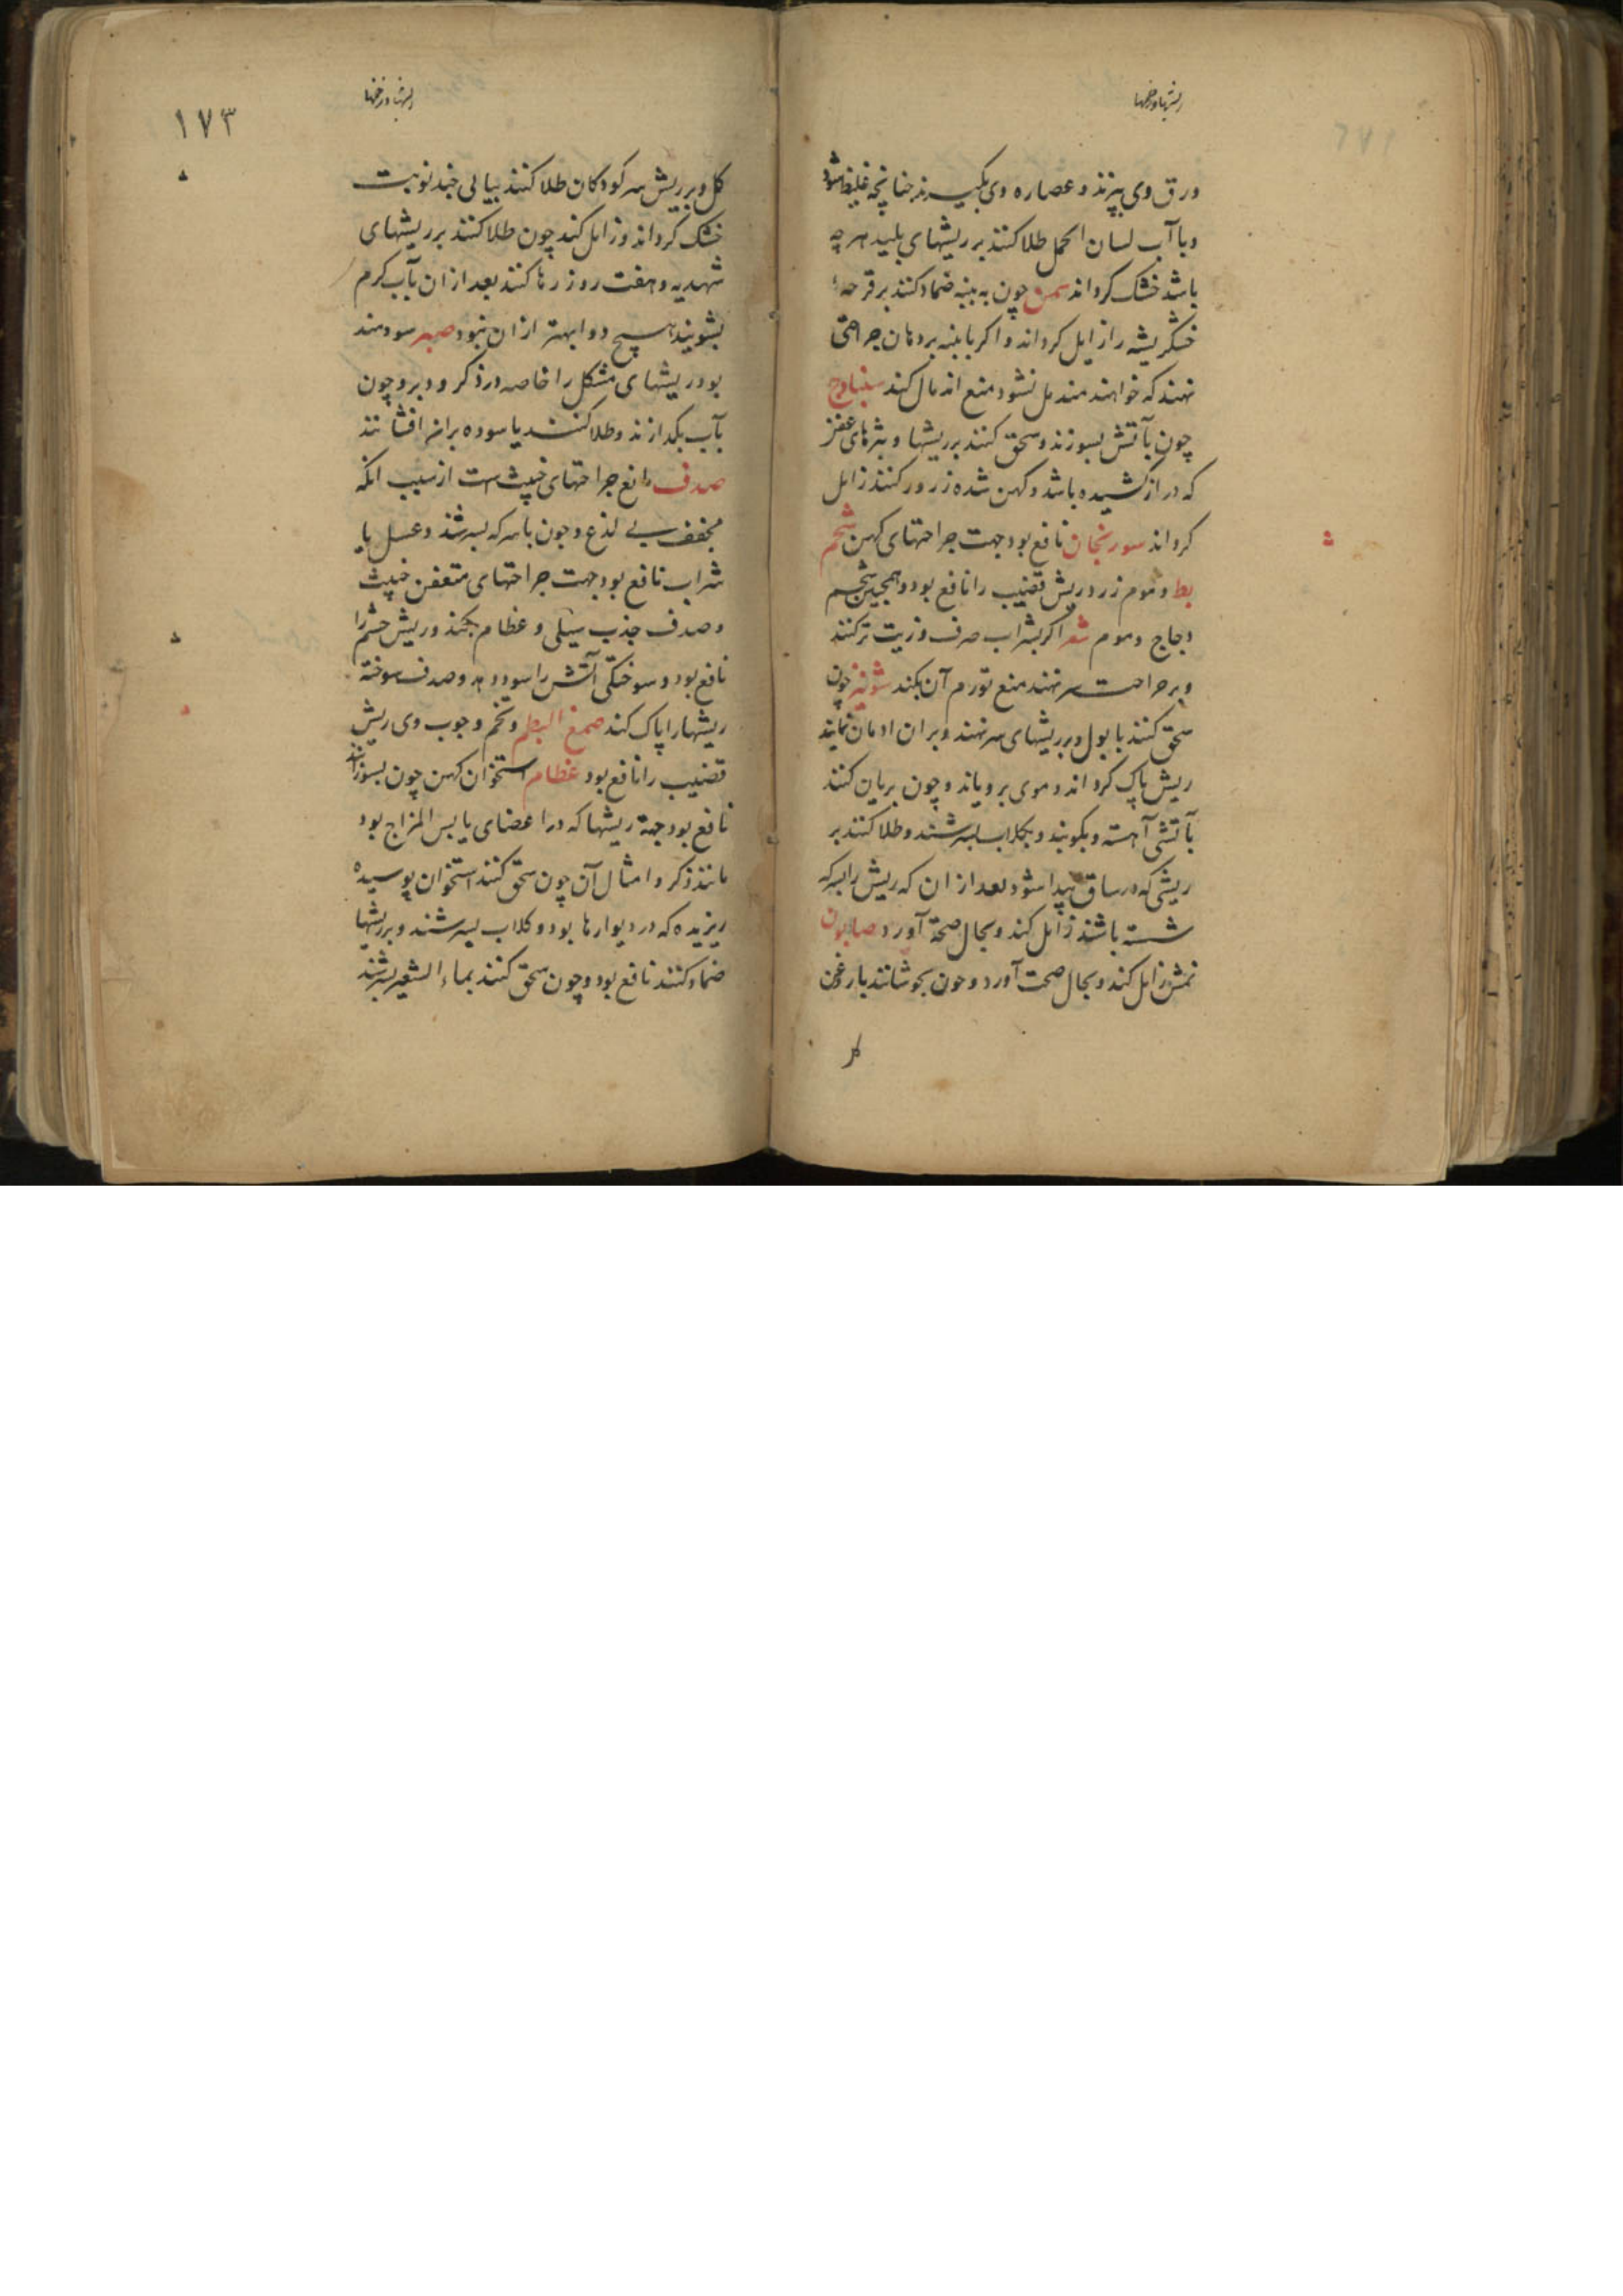 ریشها و زخمها
ورق وی بپزند و عصاره وی بکیرند چنانچه غلیظ شود
و با آب لسان الحمل طلا کنند بر ریشهای پلید هرچه
باشد خشک کرداند سمن چون به پنبه ضماد کنند بر قرحهٔ
خشکریشه را زایل کرداند و اکر با پنبه بر دهان جراحتی
نهند که خواهند مندمل نشود منع اندمال کند سنبادج
چون بآتش بسوزند و سحق کنند بر ریشها و بثرهای عفن
که دراز کشیده باشد و کهن شده زرور کنند زایل
کرداند سورنجان نافع بود جهت جراحتهای کهن شحم
بط و موم زرد ریش قضیب را نافع بود و همچنین شحم
دجاج و موم شعر اکر بشراب صرف و زیت تر کنند
و بر جراحت سر نهند منع تورم آن بکند شونیز چون
سحق کنند با بول و بر ریشهای سر نهند و بران ادمان نمایند
ریش پاک کرداند و موی برویاند و چون بریان کنند
بآتشی آهسته و بکوبند و بکلاب بسرشند و طلا کنند بر
ریشی که در ساق پیدا شود بعد از ان که ریش را بسرکه
شسته باشند زایل کند و بحال صحة آورد صابون
نمش زایل کند و بحال صحت آورد و چون بجوشانند با روغن
کل
ریشها و زخمها
۱۷۳
کل و بر ریش سر کودکان طلا کنند بیالی چند نوبت
خشک کرداند و زایل کند چون طلا کنند بر ریشهای
شهدیه و هفت روز رها کنند بعد از ان بآب کرم
بشویند هیچ دوا بهتر از ان نبود صبر سودمند
بود ریشهای مشکل را خاصه در ذکر و دبر و چون
بآب بکدازند و طلا کنند یا سوده بران افشانند
صدف نافع جراحتهای خبیث است از سبب انکه
مجفف بی لذع و چون با سرکه بسرشند و عسل یا
شراب نافع بود جهت جراحتهای متعفن خبیث
و صدف جذب سلی و عظام بکند و ریش چشم را
نافع بود و سوختکی آتش را سود دهد و صدف سوخته
ریشها را پاک کند صمغ البطم و تخم و چوب وی ریش
قضیب را نافع بود عظام استخوان کهن چون بسوزانند
نافع بود جهة ریشها که در اعضای یابس المزاج بود
مانند ذکر و امثال آن چون سحق کنند استخوان پوسیده
ریزیده که در دیوارها بود و کلاب بسرشند و بر ریشها
ضماد کنند نافع بود و چون سحق کنند بماء الشعیر بسرشند